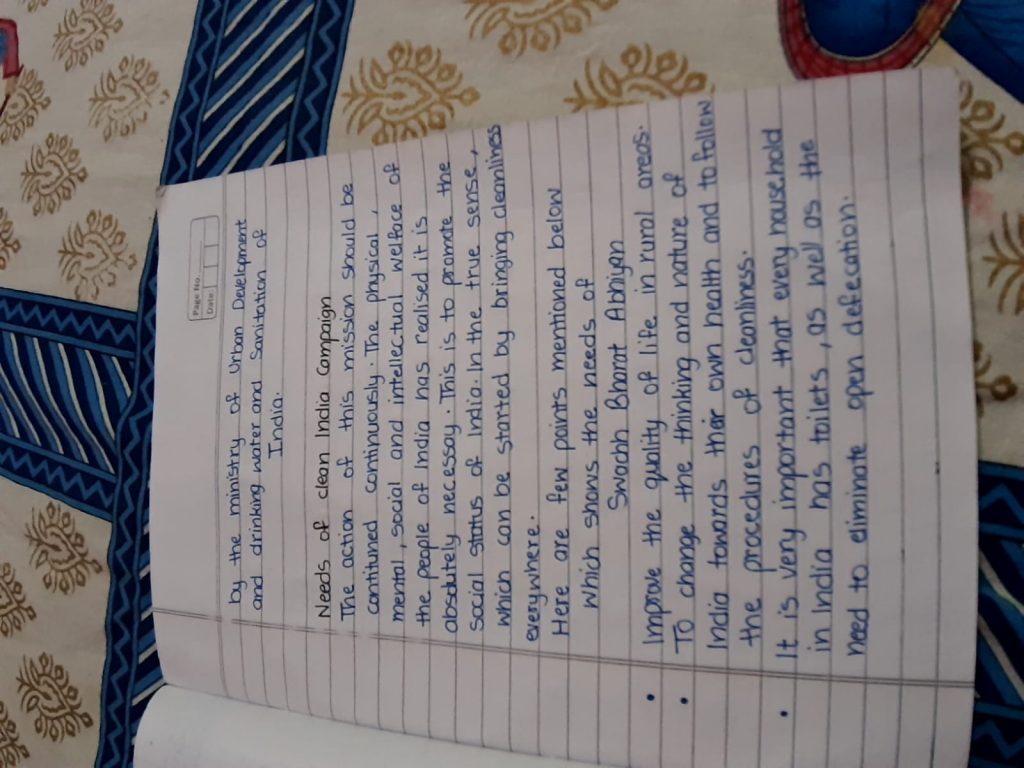 Page No.
Date
by the ministry of Urban Development
and drinking water and Sanitation of
India.
Needs of clean India Campaign
The action of this mission should be
contituned continuously. The physical,
mental, social and intellectual welface of
the people of India has realised it is
absolutely necessay. This is to promote the
social status of India. In the true sense,
which can be started by bringing cleanliness
everywhere.
Here are few points mentioned below
which shows the needs of
Swach Bharat Abhiyan
• Improve the quality of life in rural areas.
• To change the thinking and nature of
India towards their own health and to follow
the procedures of cleanliness.
• It is very important that every household
in India has toilets, as well as the
need to eliminate open defecation.